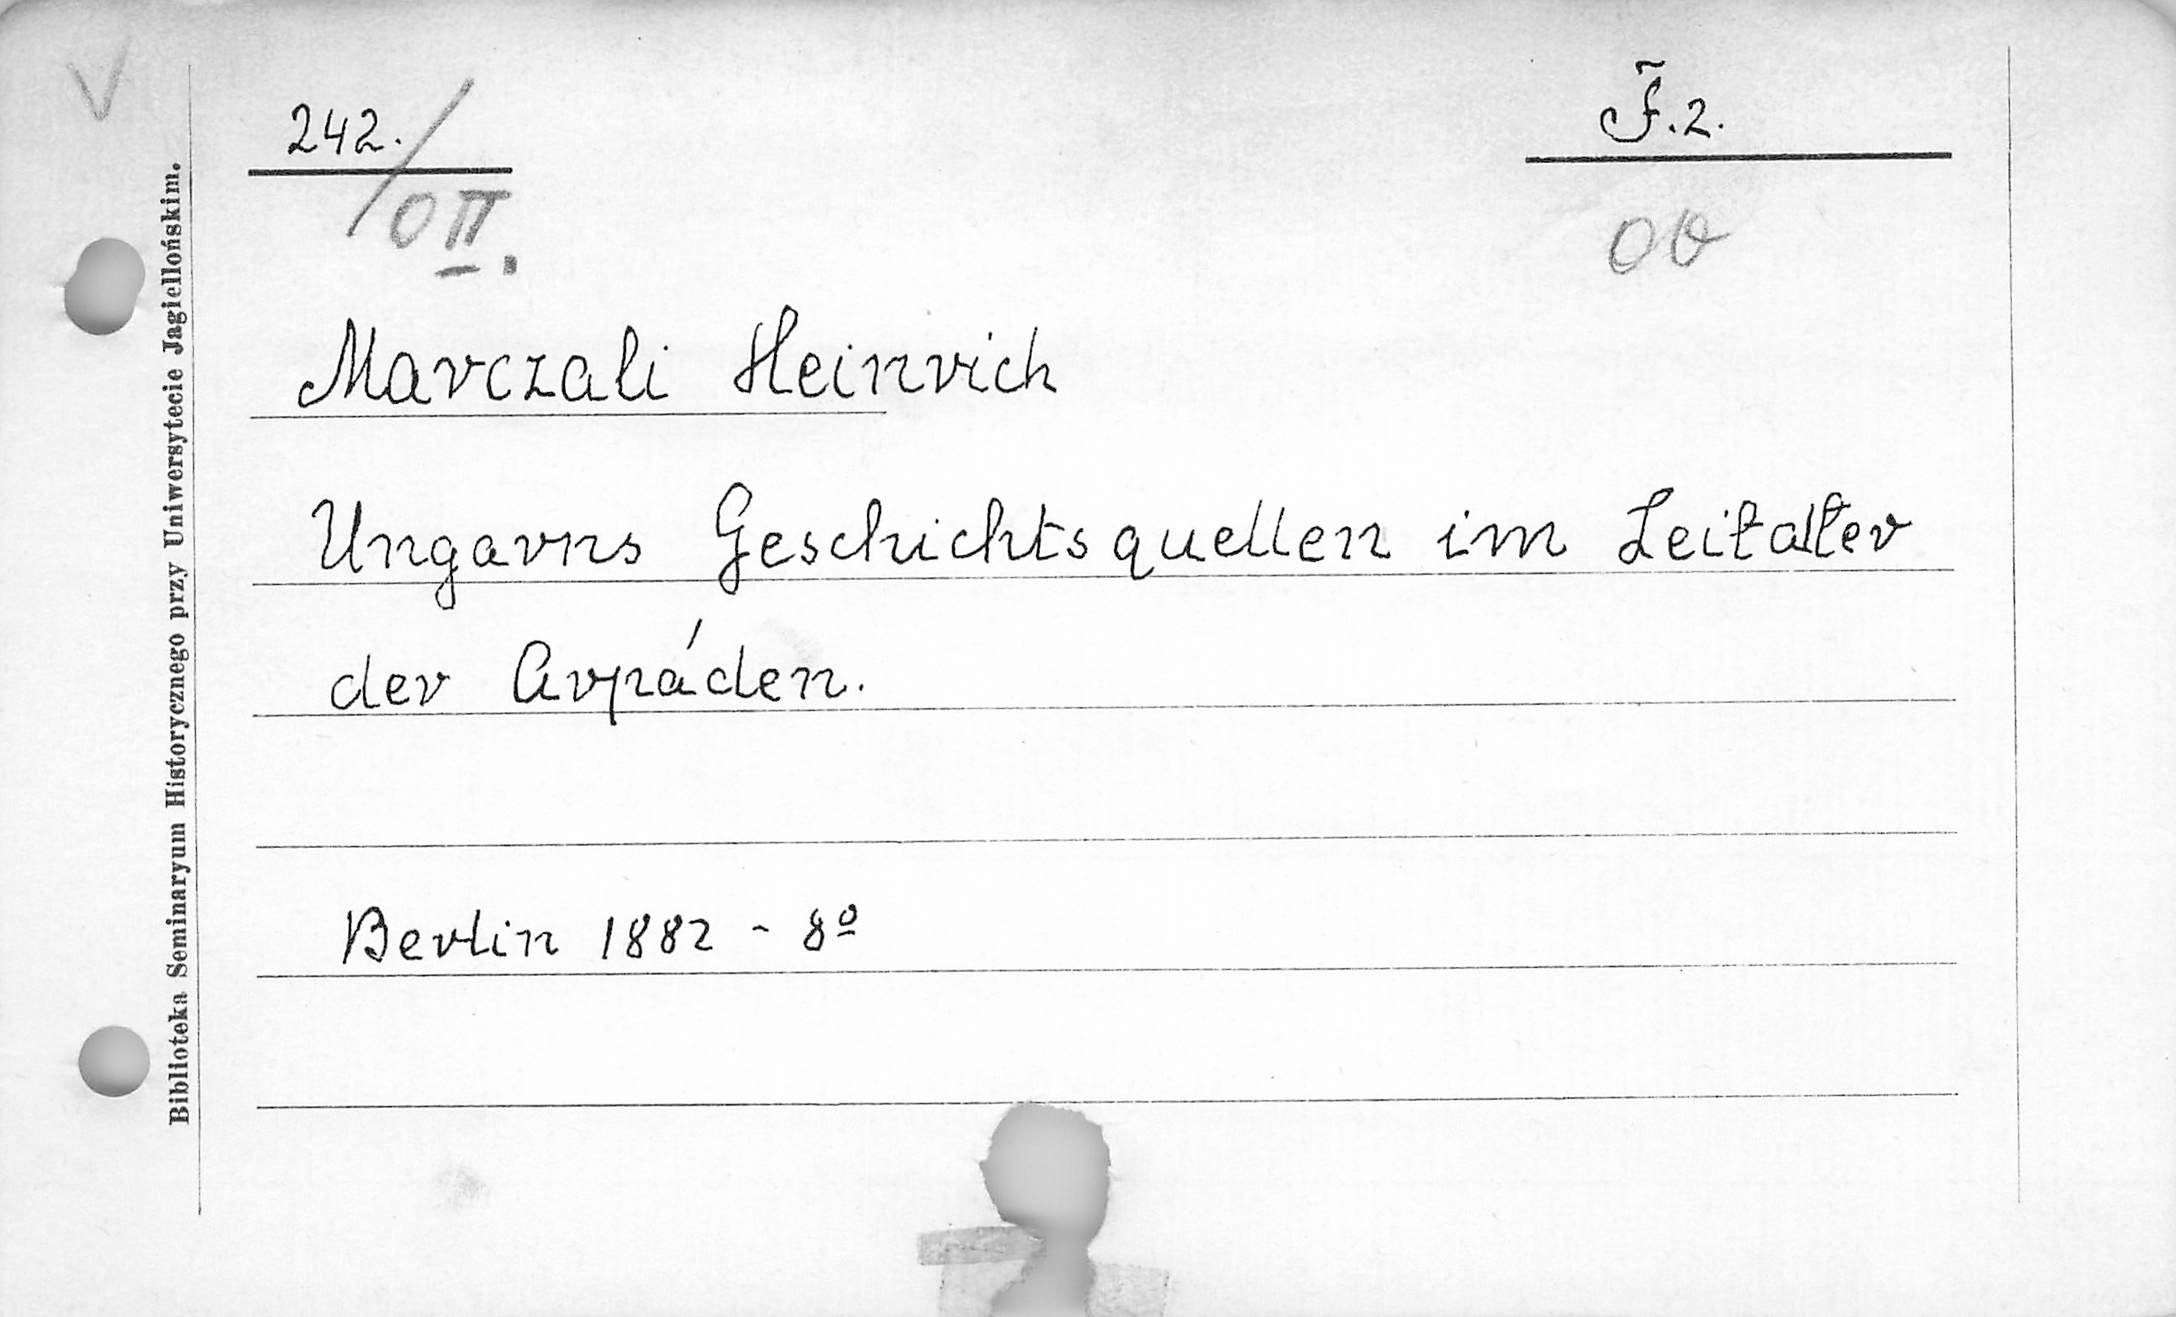 V
242./
F.2.
O II.
OO
Marczali Heinrich
Ungarns Geschichtsquellen im Zeitalter
der Arpáden.
Berlin 1882 - 8º
Biblioteka Seminaryum Historycznego przy Uniwersytecie Jagiellońskim.